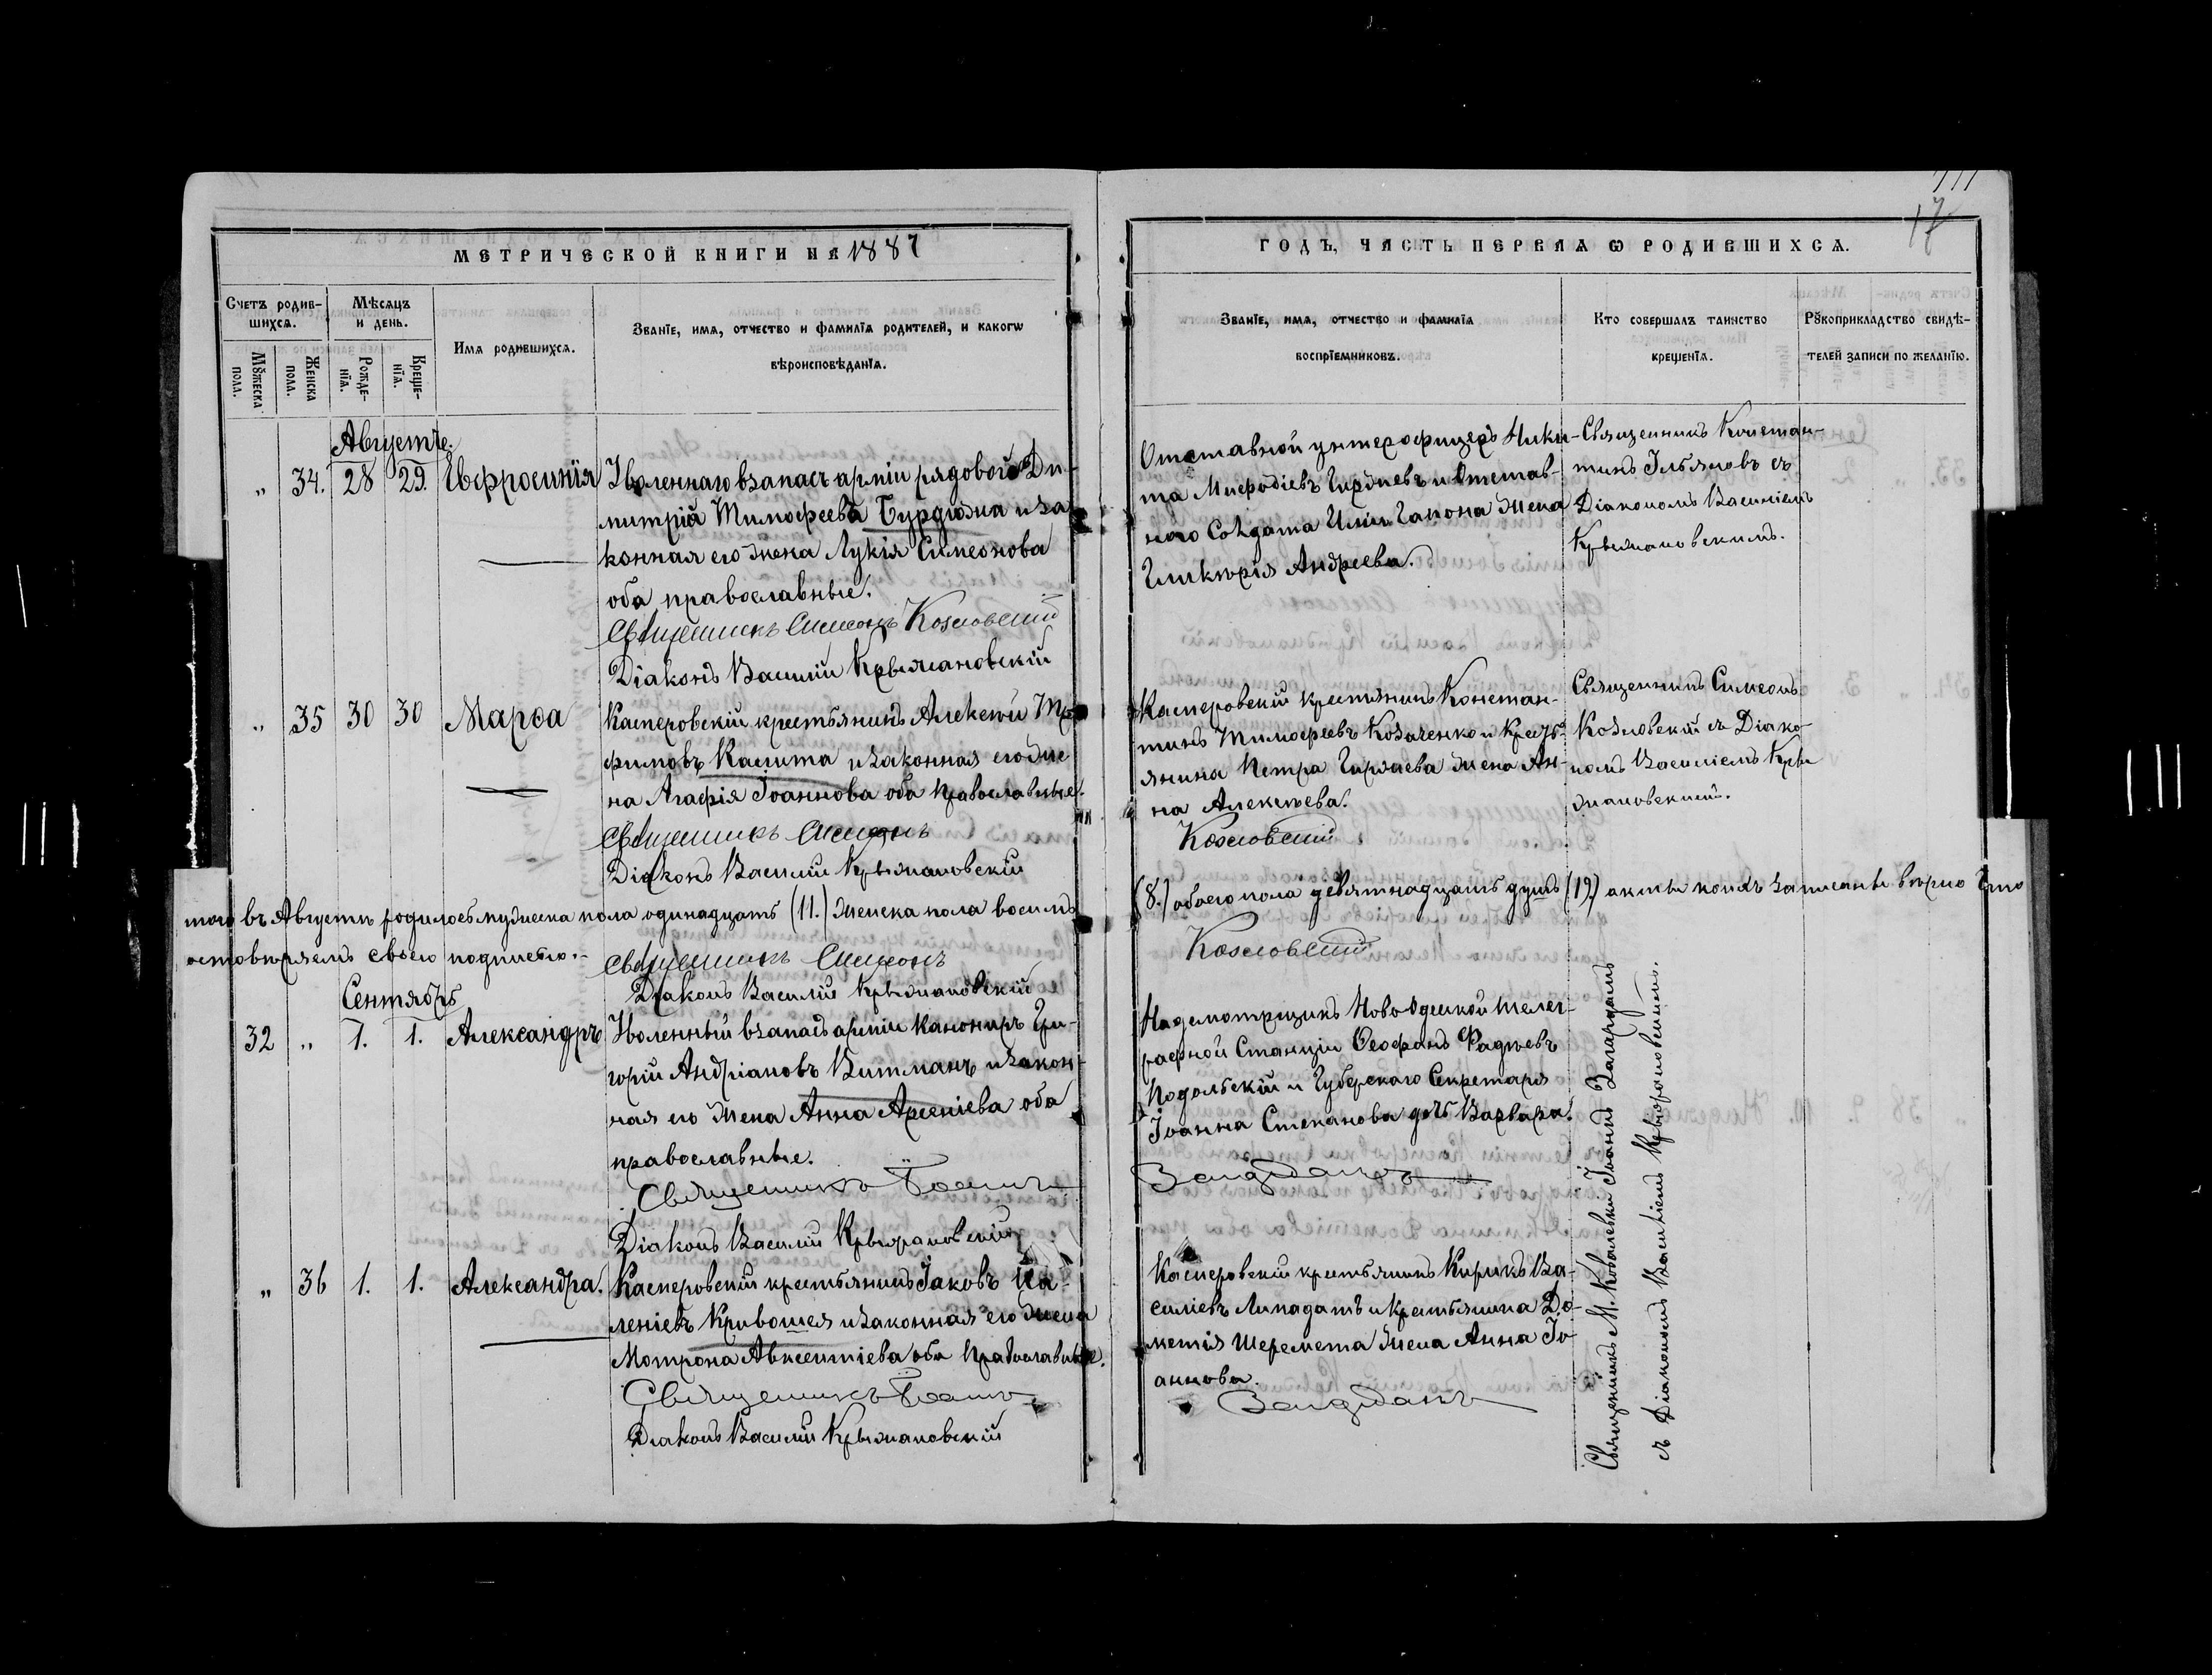 111
17
МЕТРИЧЕСКОЙ КНИГИ НА 1887
ГОДЪ, ЧАСТЬ ПЕРВАѦ Ѡ РОДИВШИХСѦ.
Счетъ родив-
шихсѧ.
Мѣсѧцъ
и день.
Имѧ родившихсѧ.
Званїе, имѧ, отчество и фамилїѧ родителей, и какогѡ
вѣроисповѣданїѧ.
Мꙋжеска
пола.
Женска
пола.
Рожде-
нїѧ.
Креще-
нїѧ.
Званїе, имѧ, отчество и фамилїѧ
воспрїемниковъ.
Кто совершалъ таинство
крещенїѧ.
Рꙋкоприкладство свидѣ-
телей записи по желанїю.
Августъ.
„ 34. 28 29. Евфросинія
Уволеннаго взапасъ арміи рядовой Ди-
митрій Тимофеева Бурдюжа и за
конная его жена Лукія Симеонова
оба православные.
Священникъ Симеонъ Козловскій
Діаконъ Василій Крыжановскій
Отставной унтерофицеръ Ники-
та Мефодіевъ и Отстав-
ного Солдата Гапона жена
Гликерія Андреева.
Священникъ Констан-
тинъ Ильяловъ съ
Діакономъ Василіемъ
Крыжановскимъ.
„ 35 30 30 Марѳа
Касперовскій крестьянинъ Алексѣй Тро
фимовъ Капита и законная его же
на Агафія Іоаннова оба православные.
Священникъ Симеонъ
Діаконъ Василій Крыжановскій
Касперовскій крестьянинъ Констан-
тинъ Тимофеевъ Козаченко и Кресть-
янина Петра жена Ан-
на Алексѣева.
Козловскій
Священникъ Симеонъ
Козловскій съ Діако
номъ Василіемъ Кры
жановскимъ.
того въ Августѣ родилось мужеска пола одинадцать (11.) женска пола восемь
(8.) обоего пола девятнадцать душъ (19.) акты коихъ записаны вѣрно что
остовѣряемъ своею подписью.-
Священникъ Симеонъ
Козловскій
Діаконъ Василій Крыжановскій
Сентябрь
32 „ 1. 1. Александръ
Уволенный взапасъ арміи канониръ Гри-
горій Андріановъ Витманъ и закон-
ная его жена Анна Арсеніева оба
православные.
Священникъ Іоаннъ
Загардамъ
Діаконъ Василій Крыжановскій
Надсмотрщикъ Новоодесской телег-
рафной Станціи Ѳеофанъ Фадѣевъ
Подольскій и Губерскаго Секретаря
Іоанна Степанова дочь Варвара.
Священникъ М. Ковалевки Іоаннъ Загардамъ
съ Діакономъ Василіемъ Крыжановскимъ.
„ 36 1. 1. Александра.
Касперовскій крестьянинъ Іаковъ Га-
леніевъ Кривошея и законная его жена
Мотрона Авксентіева оба православные.
Священникъ Іоаннъ
Загардамъ
Діаконъ Василій Крыжановскій
Касперовскій крестьянинъ Кирикъ Ва-
силіевъ Липадатъ и крестьянина До-
метія Шеремета жена Анна Іо-
аннова.